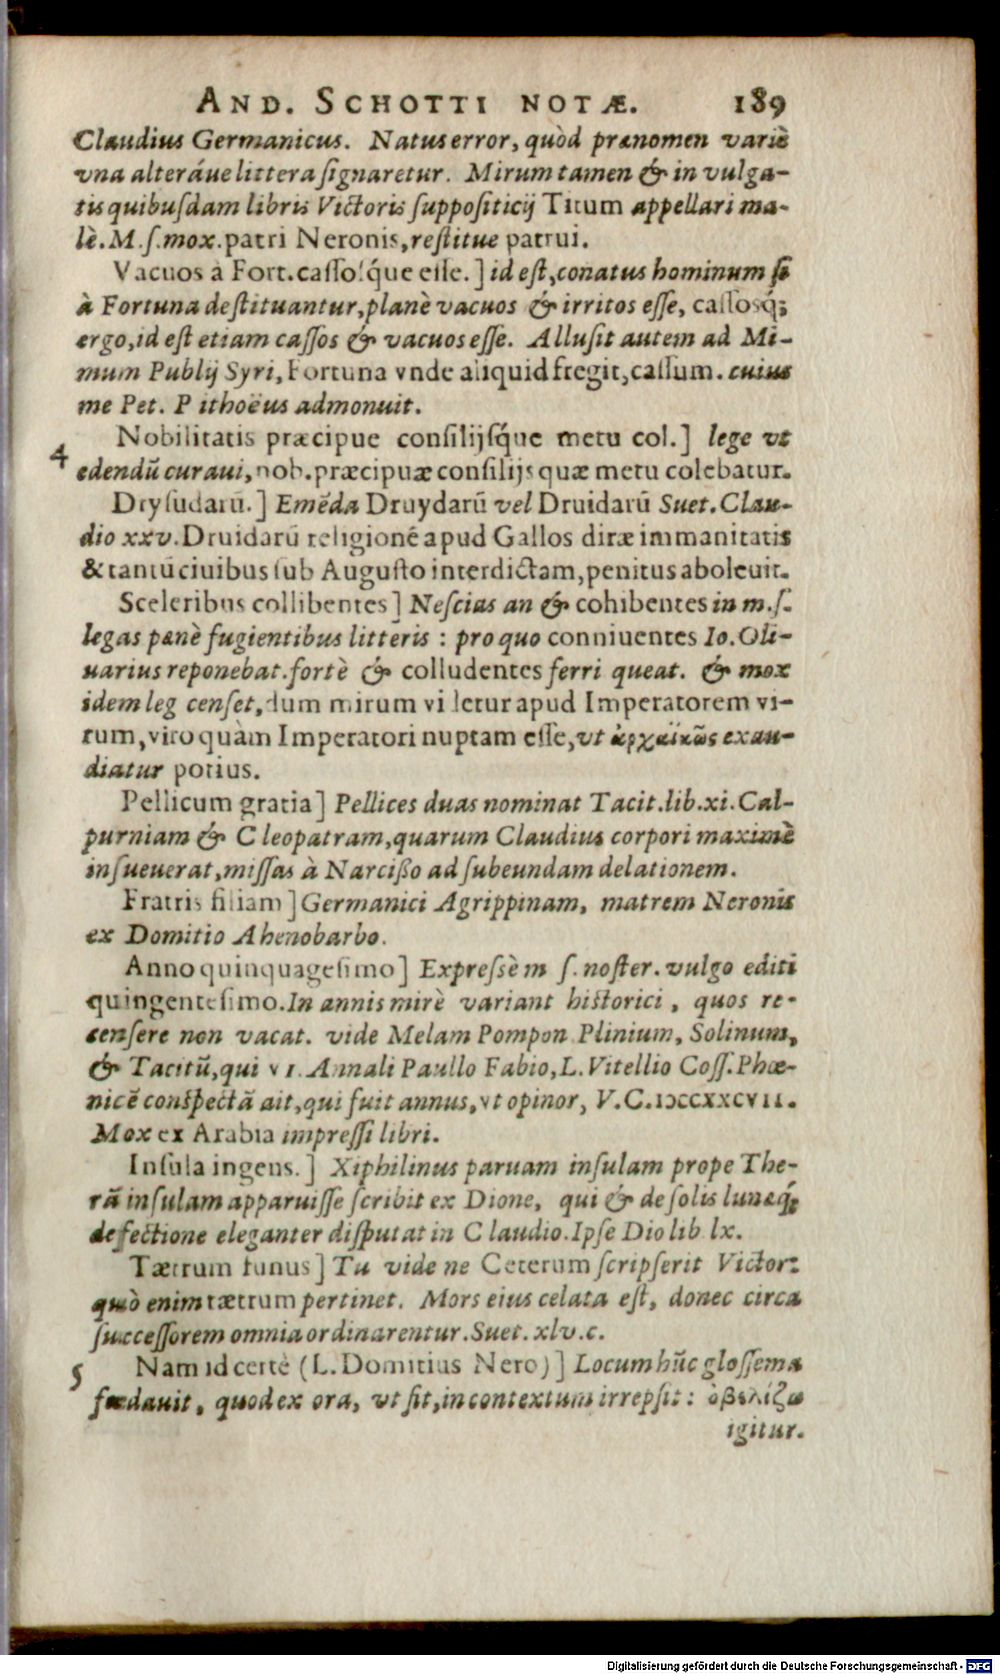 AND. SCHOTTI NOTÆ. 189
Claudius Germanicus. Natus error, quòd prænomen variè
vna alteráue littera signaretur. Mirum tamen & in vulga-
tis quibusdam libris Victoris suppositicij Titum appellari ma-
lè. M. s. mox. patri Neronis, restitue patrui.
Vacuos à Fort. cassosq́ue esse.] id est, conatus hominum si
à Fortuna destituantur, planè vacuos & irritos esse, cassosq́;
ergo, id est etiam cassos & vacuos esse. Allusit autem ad Mi-
mum Publij Syri, Fortuna vnde aliquid fregit, cassum. cuius
me Pet. Pithoëus admonuit.
4 Nobilitatis præcipue consilijsq́ue metu col.] lege vt
edendū curaui, nob. præcipuæ consilijs quæ metu colebatur.
Drysudarū.] Emēda Druydarū vel Druidarū Suet. Clau-
dio xxv. Druidarū religionē apud Gallos diræ immanitatis
& tantū ciuibus sub Augusto interdictam, penitus aboleuit.
Sceleribus collibentes] Nescias an & cohibentes in m. s.
legas pænè fugientibus litteris : pro quo conniuentes Io. Oli-
uarius reponebat. fortè & colludentes ferri queat. & mox
idem leg censet, dum mirum videtur apud Imperatorem vi-
rum, viro quàm Imperatori nuptam esse, vt ἀρχαϊκῶς exau-
diatur potius.
Pellicum gratia] Pellices duas nominat Tacit. lib. xi. Cal-
purniam & Cleopatram, quarum Claudius corpori maximè
insueuerat, missas à Narcisso ad subeundam delationem.
Fratris filiam] Germanici Agrippinam, matrem Neronis
ex Domitio Ahenobarbo.
Anno quinquagesimo] Expressè m s. noster. vulgo editi
quingentesimo. In annis mirè variant historici, quos re-
censere non vacat. vide Melam Pompon. Plinium, Solinum,
& Tacitū, qui VI. Annali Paullo Fabio, L. Vitellio Coss. Phœ-
nicē conspectā ait, qui fuit annus, vt opinor, V. C. IƆCCXXCVII.
Mox ex Arabia impressi libri.
Insula ingens.] Xiphilinus paruam insulam prope The-
rā insulam apparuisse scribit ex Dione, qui & de solis lunæq́;
defectione eleganter disputat in Claudio. Ipse Dio lib. lx.
Tætrum funus] Tu vide ne Ceterum scripserit Victor:
quò enim tætrum pertinet. Mors eius celata est, donec circa
successorem omnia ordinarentur. Suet. xlv. c.
5 Nam id certè (L. Domitius Nero)] Locum hūc glossema
fœdauit, quod ex ora, vt fit, in contextum irrepsit: ὀβελίζω
igitur.
Digitalisierung gefördert durch die Deutsche Forschungsgemeinschaft - DFG